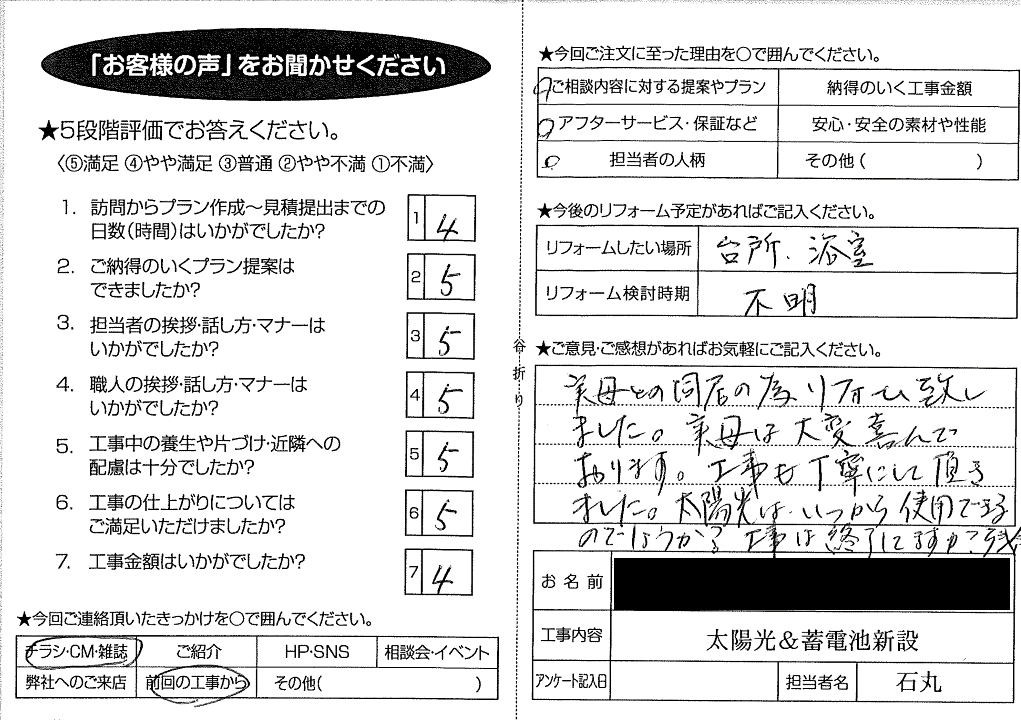 「お客様の声」をお聞かせください
★5段階評価でお答えください。
〈⑤満足 ④やや満足 ③普通 ②やや不満 ①不満〉
1. 訪問からプラン作成～見積提出までの
日数(時間)はいかがでしたか?
1 4
2. ご納得のいくプラン提案は
できましたか?
2 5
3. 担当者の挨拶・話し方・マナーは
いかがでしたか?
3 5
4. 職人の挨拶・話し方・マナーは
いかがでしたか?
4 5
5. 工事中の養生や片づけ・近隣への
配慮は十分でしたか?
5 5
6. 工事の仕上がりについては
ご満足いただけましたか?
6 5
7. 工事金額はいかがでしたか?
7 4
★今回ご連絡頂いたきっかけを○で囲んでください。
チラシ・CM・雑誌 ご紹介 HP・SNS 相談会・イベント
弊社へのご来店 前回の工事から その他( )
谷折り
★今回ご注文に至った理由を○で囲んでください。
ご相談内容に対する提案やプラン 納得のいく工事金額
アフターサービス・保証など 安心・安全の素材や性能
担当者の人柄 その他( )
★今後のリフォーム予定があればご記入ください。
リフォームしたい場所 台所、浴室
リフォーム検討時期 不明
★ご意見・ご感想があればお気軽にご記入ください。
実母との同居の為リフォーム致し
ました。実母は大変喜んで
おります。工事も丁寧にして頂き
ました。太陽光は、いつから使用できる
のでしょうか?工事は終了してますか?残
お名前
工事内容 太陽光＆蓄電池新設
アンケート記入日 担当者名 石丸